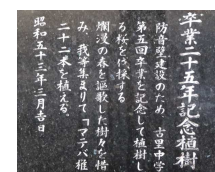 卒業二十五年記念植樹
防音壁建設のため 古里中学
第五回卒業を記念して植樹し
た桜を伐採する
爛漫の春を謳歌した樹々を惜
み、我等集まりて「マテバ椎
二十二本を植える。
昭和五十三年三月吉日